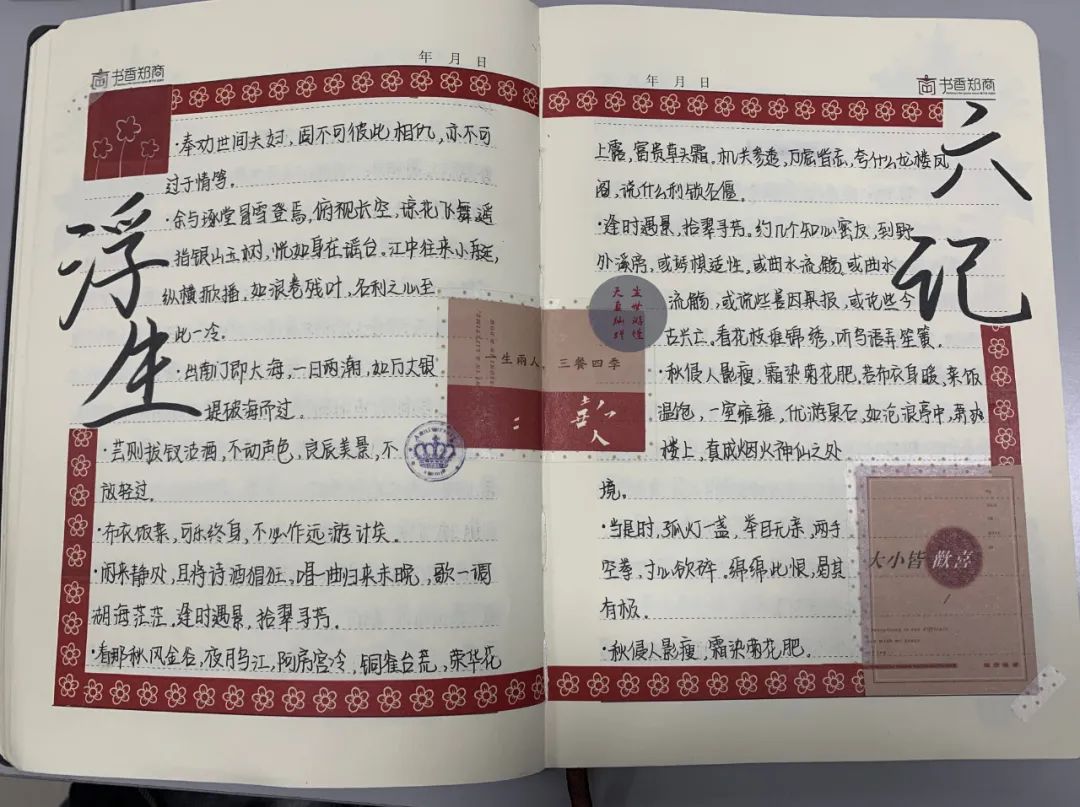 年 月 日
书香郑商
浮生
·奉劝世间夫妇,固不可彼此相仇,亦不可
过于情笃。
·余与琢堂冒雪登焉,俯视长空,琼花飞舞,遥
指银山玉树,恍如身在谣台。江中往来小艇,
纵横掀播,如浪卷残叶,名利之心至
此一冷。
·出南门即大海,一日两潮,如万丈银
堤破海而过。
·芸则拔钗沽酒,不动声色,良辰美景,不
放轻过。
·布衣饭菜,可乐终身,不必作远游计矣。
·闲来静处,且将诗酒猖狂,唱一曲归来未晚,歌一调
湖海茫茫。逢时遇景,拾翠寻芳。
·看那秋风金谷,夜月乌江,阿房宫冷,铜雀台荒,荣华花
一生兩人,三餐四季
喜人
年 月 日
书香郑商
六记
上露,富贵草头霜,机关参透,万虑皆忘,夸什么龙楼凤
阁,说什么利锁名僵。
·逢时遇景,拾翠寻芳。约几个知心密友,到野
外溪旁,或琴棋适性,或曲水流觞,或曲水
流觞,或说些善因果报,或说些今
古兴亡。看花枝堆锦绣,听鸟语弄笙簧。
·秋侵人影瘦,霜染菊花肥,若布衣身暖,菜饭
温饱,一室雍雍,优游泉石,如沧浪亭中,萧爽
楼上,真成烟火神仙之处
境。
·当是时,孤灯一盏,举目无亲,两手
空拳,寸心欲碎。绵绵此恨,曷其
有极。
·秋侵人影瘦,霜染菊花肥。
大小皆歡喜